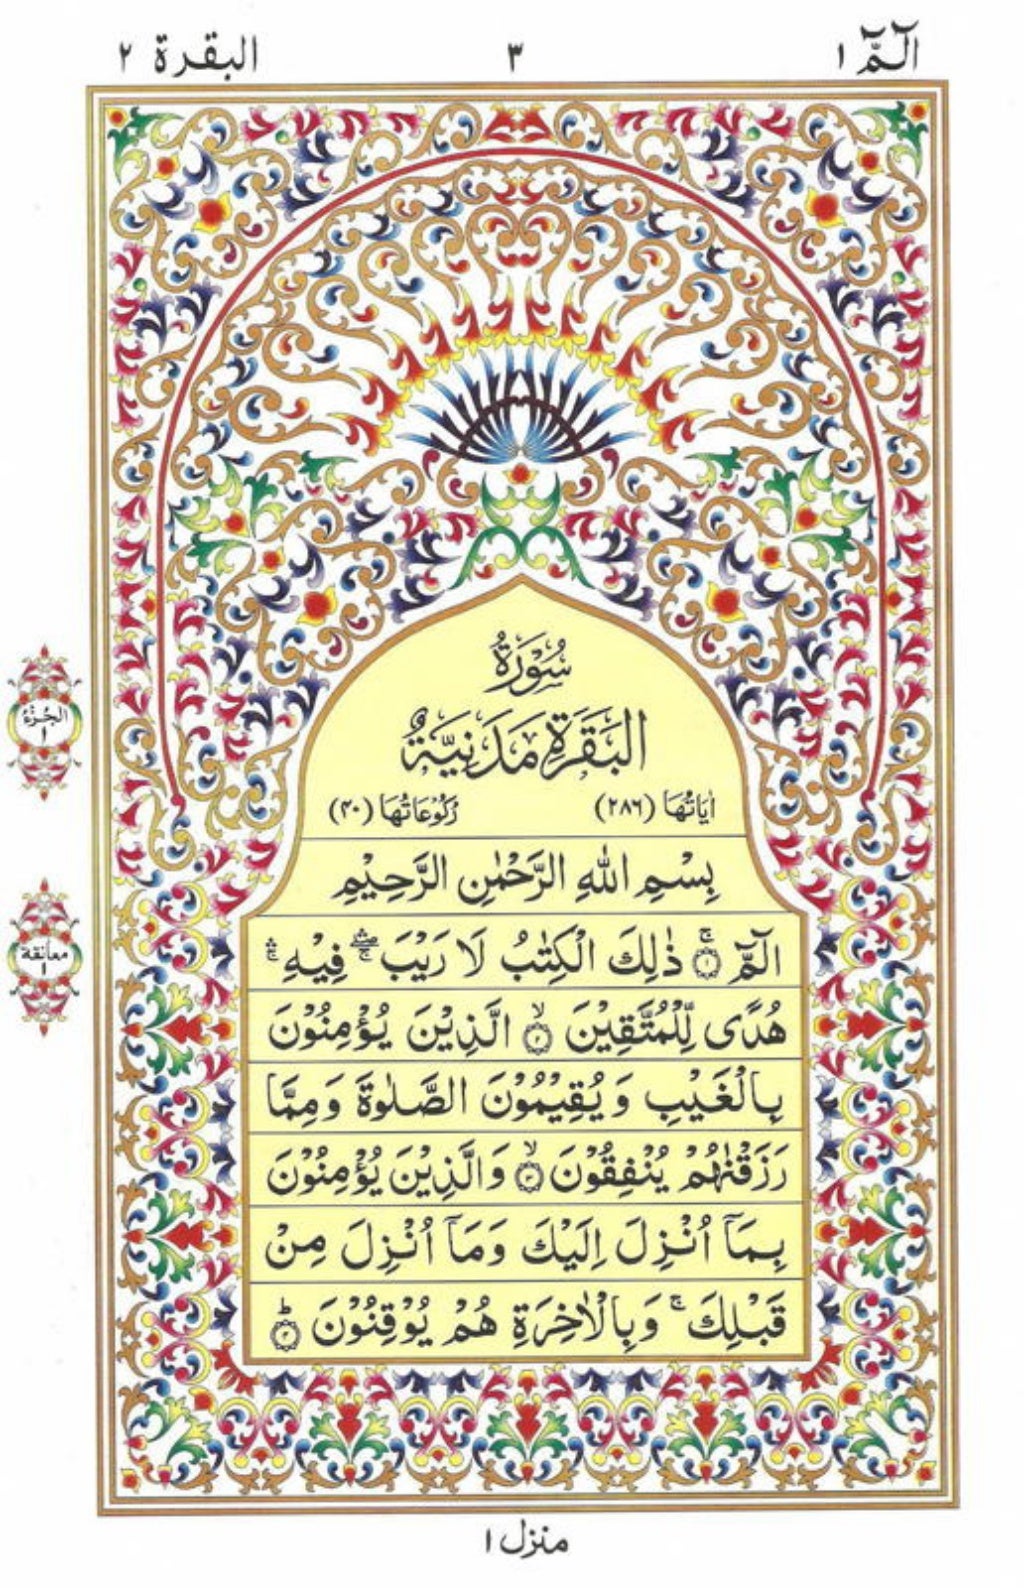 الٓمّٓ ۱
۳
البقرة ۲
سُوْرَةُ
الْبَقَرَةِ مَدَنِيَّةٌ
اٰيَاتُهَا (۲۸۶)
رُكُوْعَاتُهَا (۴۰)
بِسْمِ اللّٰهِ الرَّحْمٰنِ الرَّحِيْمِ
الٓمّٓ ۚ‏﴿۱﴾ ذٰلِكَ الْكِتٰبُ لَا رَيْبَ ۛۖۚ فِيْهِ ۛ
هُدًى لِّلْمُتَّقِيْنَ ۙ﴿۲﴾ الَّذِيْنَ يُؤْمِنُوْنَ
بِالْغَيْبِ وَيُقِيْمُوْنَ الصَّلٰوةَ وَمِمَّا
رَزَقْنٰهُمْ يُنْفِقُوْنَ ۙ﴿۳﴾ وَالَّذِيْنَ يُؤْمِنُوْنَ
بِمَآ اُنْزِلَ اِلَيْكَ وَمَآ اُنْزِلَ مِنْ
قَبْلِكَ ۚ وَبِالْاٰخِرَةِ هُمْ يُوْقِنُوْنَ ؕ﴿۴﴾
الجُزْءُ
۱
معانقة
۱
منزل ۱